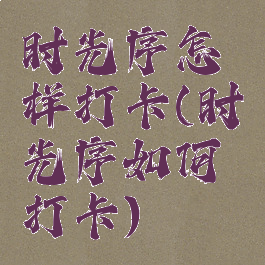 时光序怎
样打卡(时
光序如何
打卡)